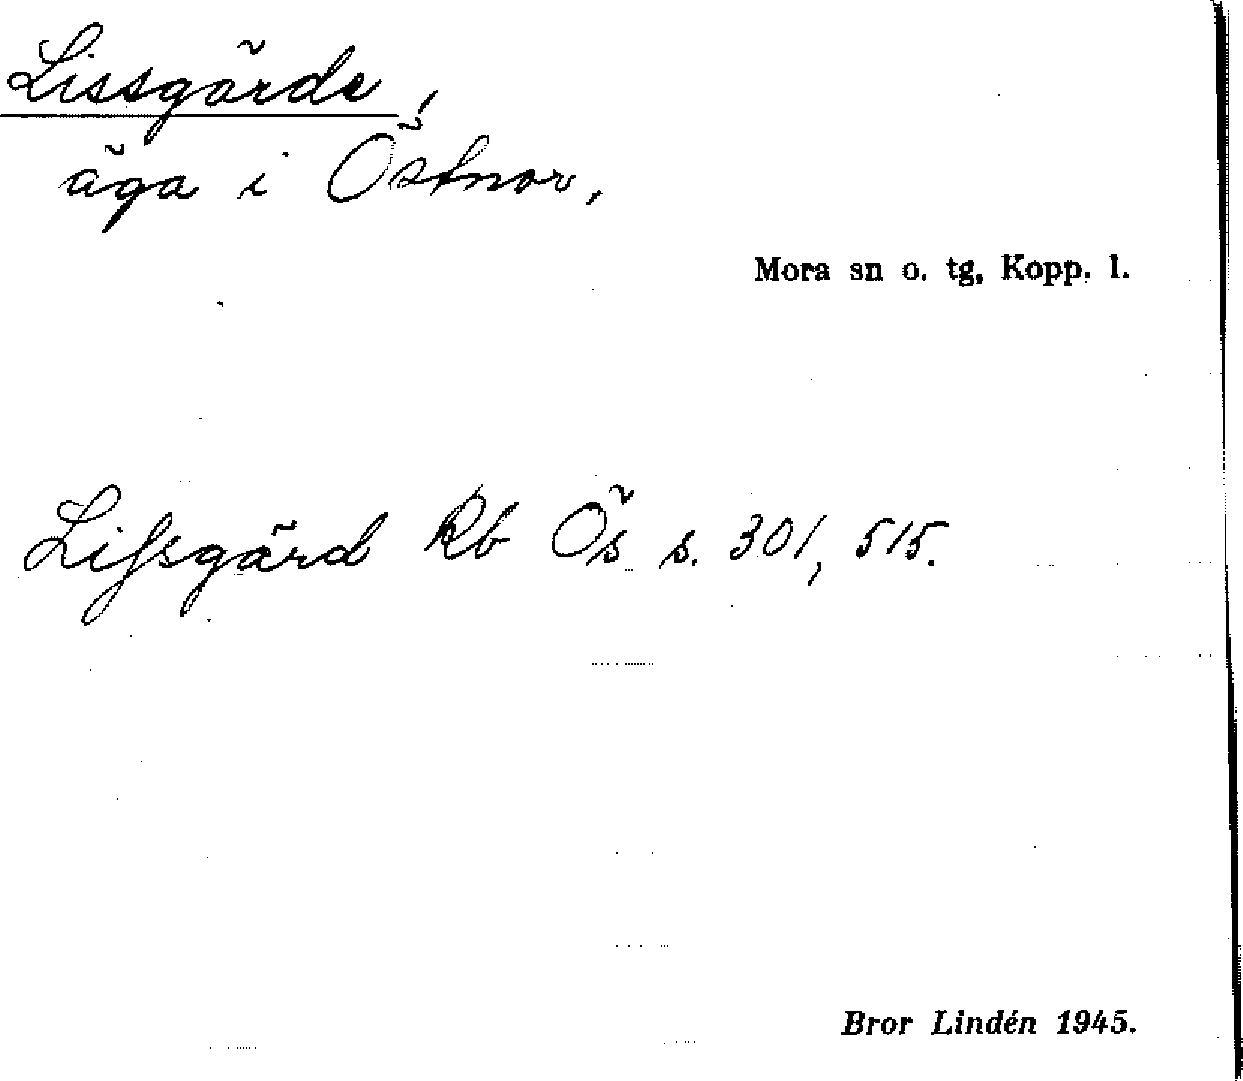 Lissgärde,
äga i Östnor,
Mora sn o. tg, Kopp. l.
Lissgärd Rb Ös s. 301, 515.
Bror Lindén 1945.